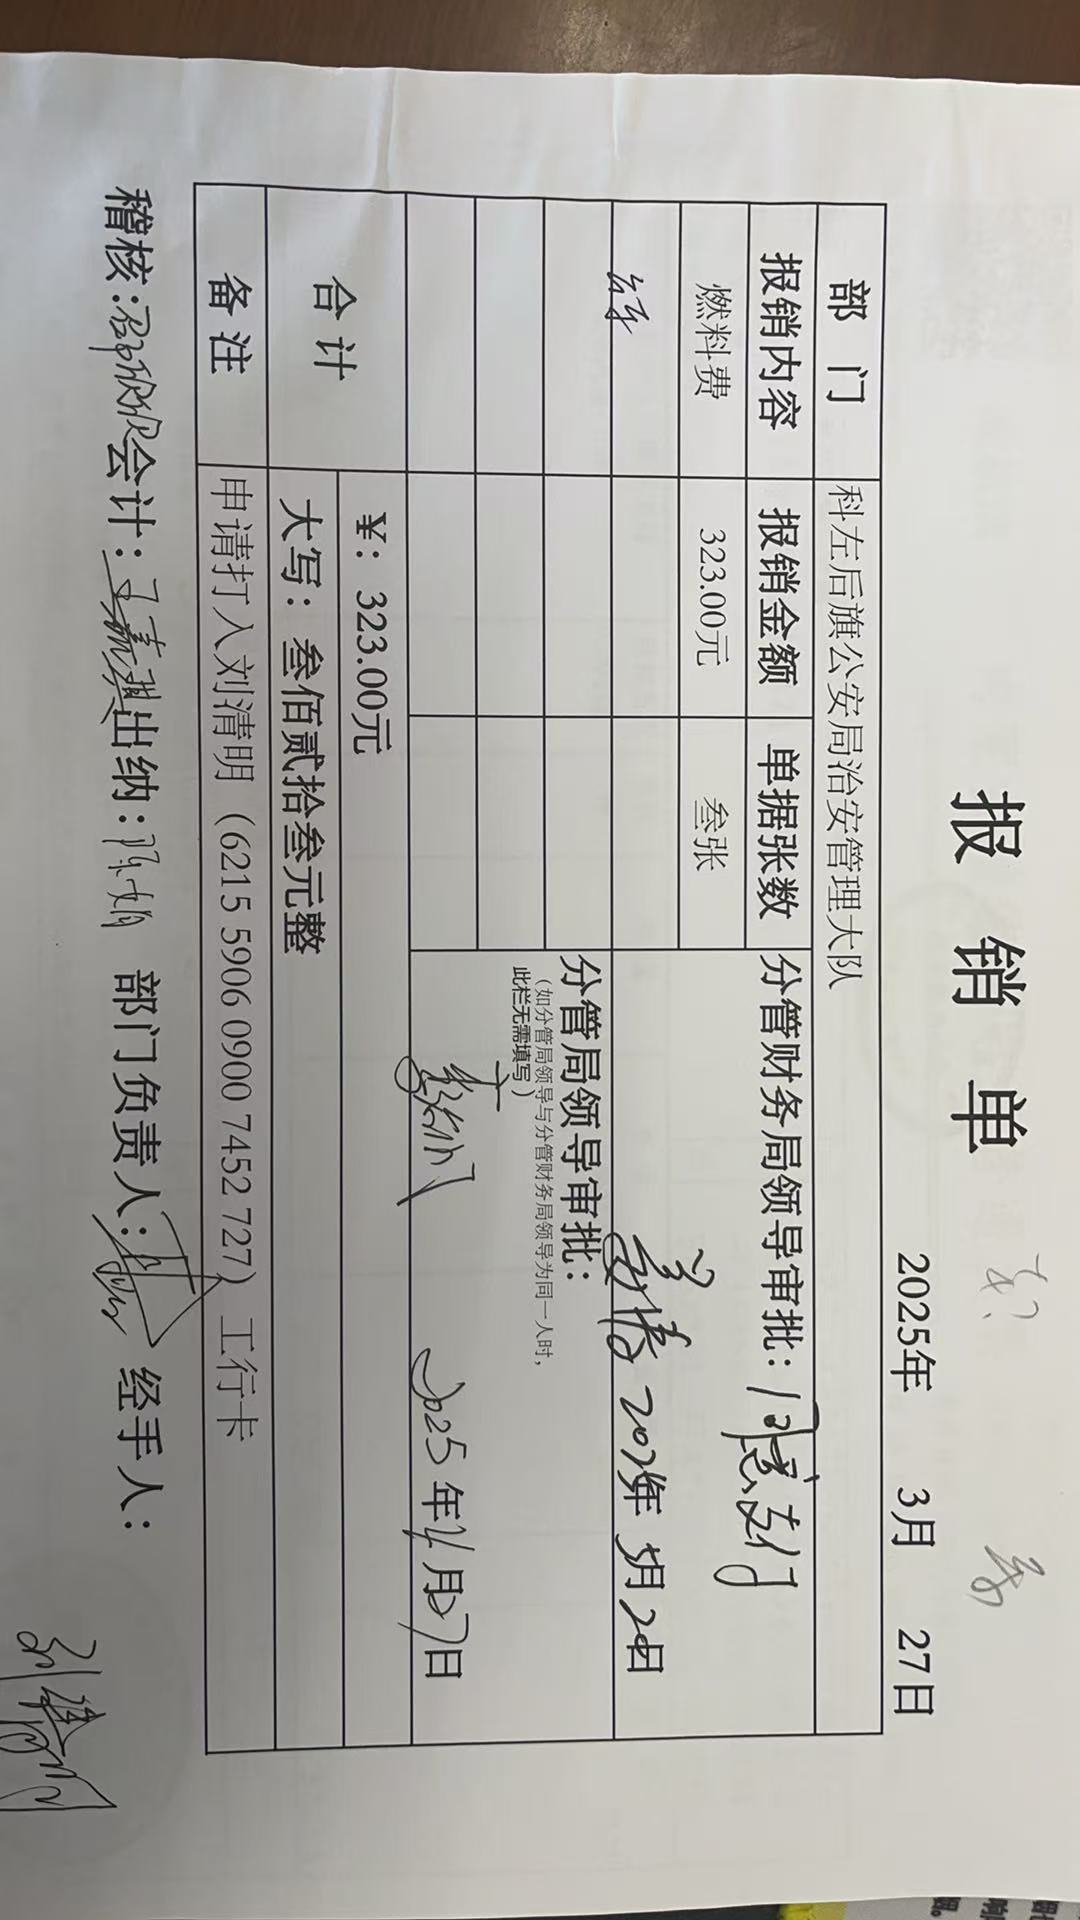 报 销 单
2025年 3月 27日
部 门 科左后旗公安局治安管理大队
报销内容 报销金额 单据张数 分管财务局领导审批：同意支付
燃料费 323.00元 叁张
2025年 5月 20日
分管局领导审批：
（如分管局领导与分管财务局领导为同一人时，
此栏无需填写）
2025年4月27日
合 计 ¥：323.00元
大写：叁佰贰拾叁元整
备 注 申请打入刘清明（6215 5906 0900 7452 727）工行卡
稽核： 会计： 出纳： 部门负责人： 经手人：
刘清明